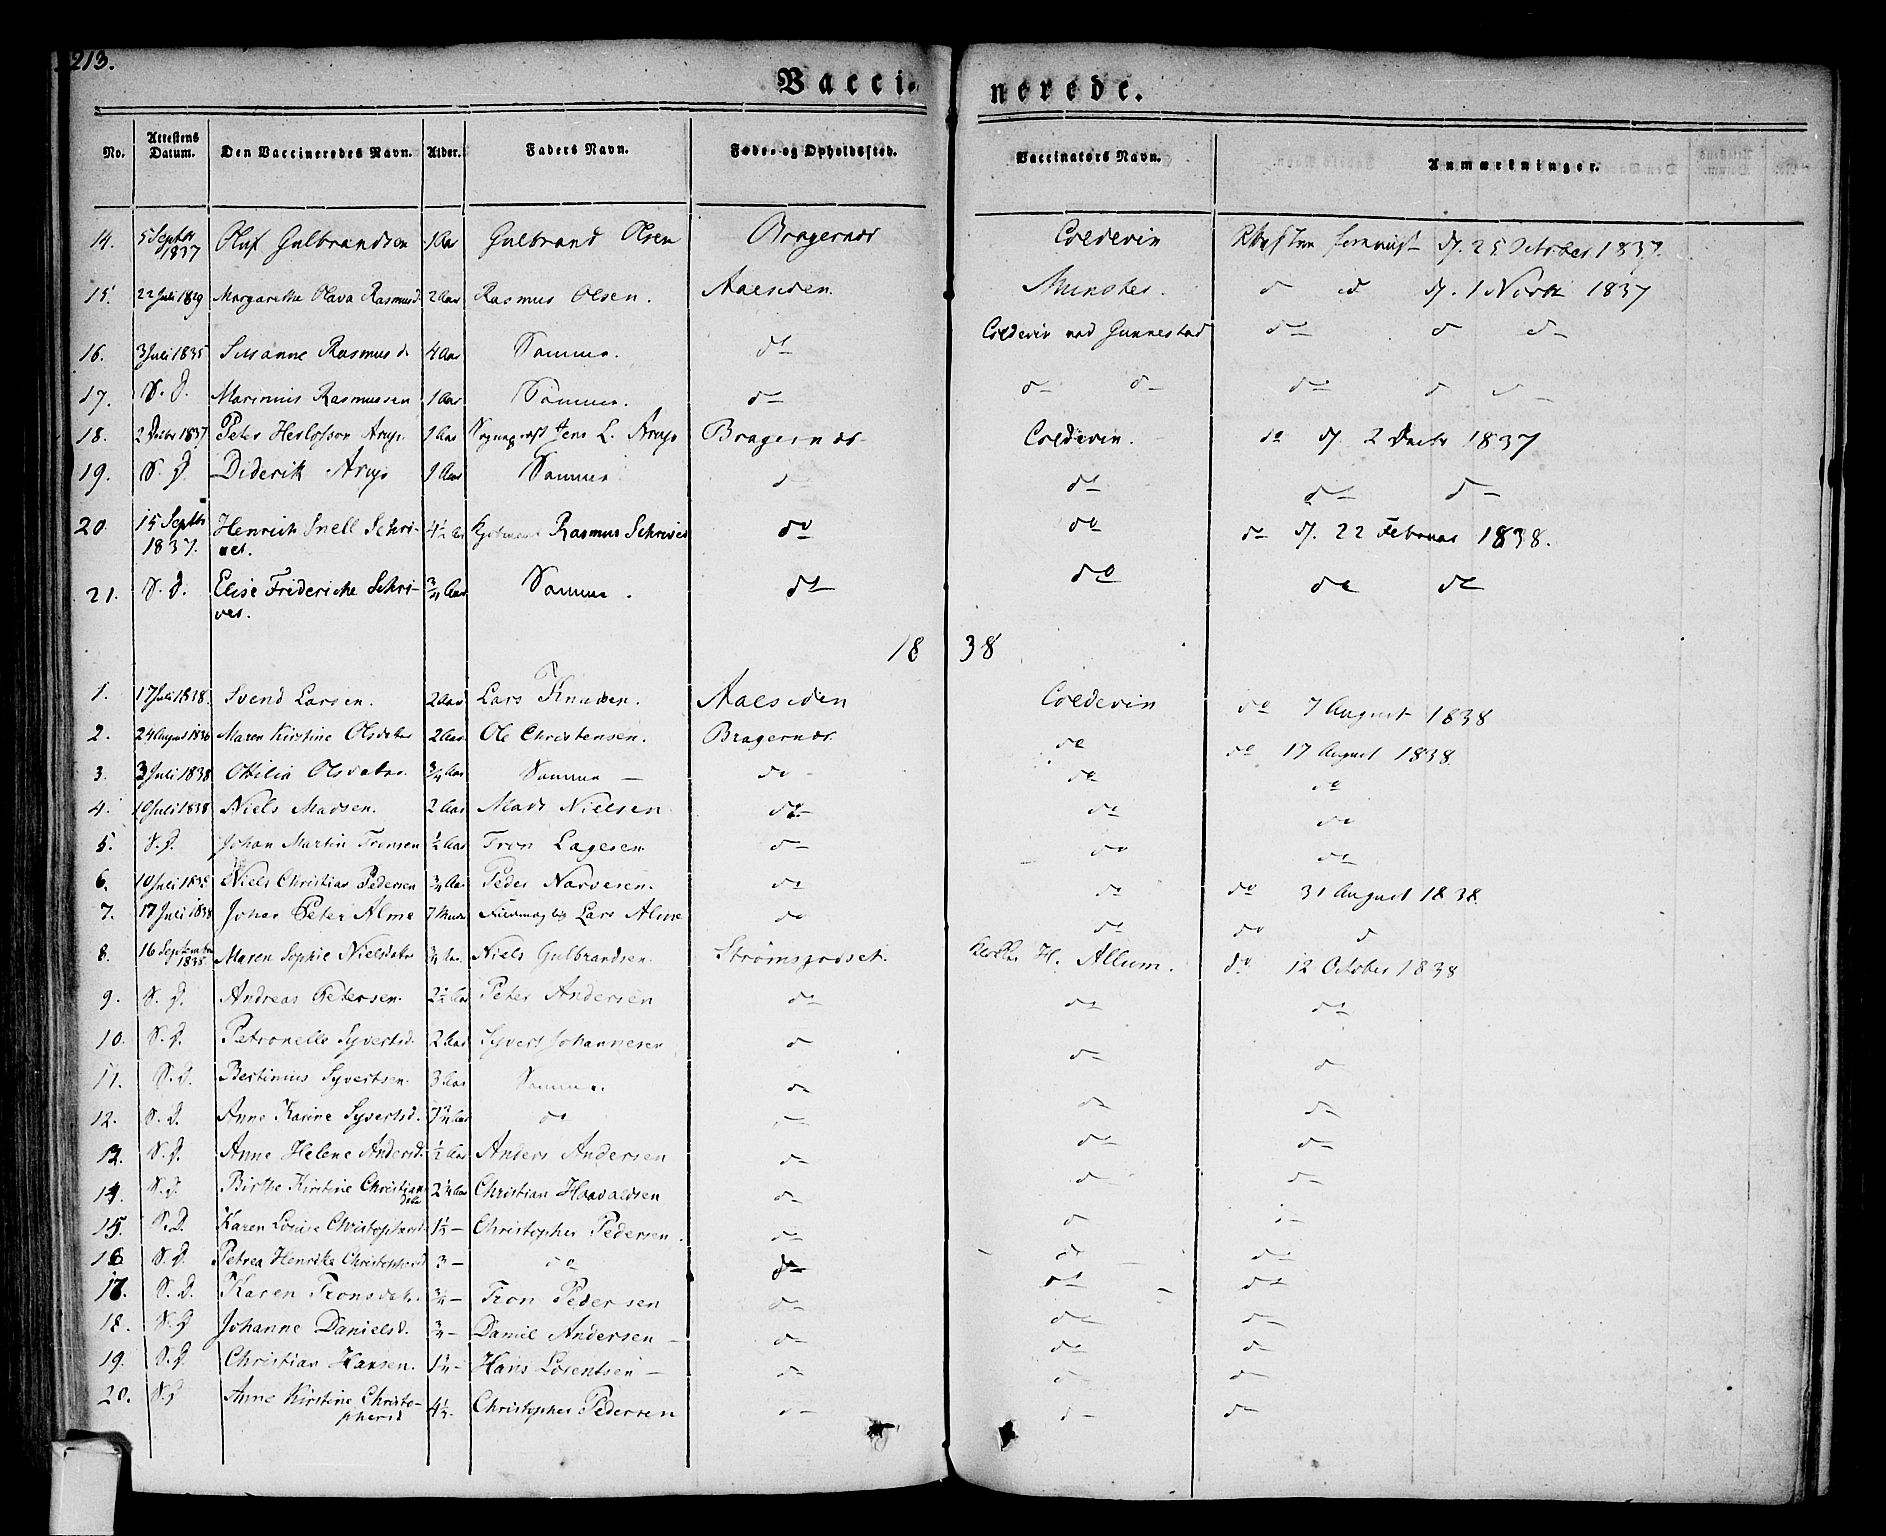 213.
Vaccinerede.
No. Attestens Datum. Den Vaccineredes Navn. Alder. Faders Navn. Føde- og Opholdssted. Vaccinators Navn. Anmærkninger.
14. 5 Septbr 1837 Oluf Gulbrandsen 1 Aar Gulbrand Olsen Bragernæs Coldevin dj. 25 October 1837.
15. 22 Juli 1829 Margarethe Olava Rasmusd. 2 Aar Rasmus Olsen. Aaesiden Munster. do do dj. 1 Novbr 1837
16. 3 Juli 1835 Susanne Rasmusd. 4 Aar Samme. do Coldevin ved Gunnestad do do do
17. S. D. Marinius Rasmussen 1 Aar Samme. do do do do do
18. 2 Decbr 1837 Peter Herlofson Arup 1 Aar Jens L. Arup Bragernæs Coldevin. do dj. 2 Decbr 1837
19. S. D. Diderik Arup 1 Aar Samme do do do do
20 15 Septbr 1837. Henrich Snell Schri-
ver. 4½ Aar Rasmus Schriver do do do dj. 22 Februar 1838.
21. S. D. Elise Frideriche Schri-
ver. ¾ Aar Samme. do do do do
1838
1. 17 Juli 1838. Svend Larsen. 2 Aar Lars Knudsen. Aaesiden Coldevin do 7 August 1838
2. 24 August 1836 Maren Kirstine Olsdatter 2 Aar Ole Christensen. Bragernæs. do do 17 August 1838.
3. 3 Juli 1838 Ottilia Olsdatter ¾ Aar Samme — do do do
4. 10 Juli 1838 Niels Madsen. 2 Aar Mads Nielsen do do do
5. S. D. Johan Martin Tronsen ½ Aar Tron Lagesen do do do
6. 10 Juli 1838 Niels Christian Pedersen ¾ Aar Peder Narvesen. do do do 31 August 1838.
7. 17 Juli 1838 Johan Peter Alme 7 Lars Alme do do do d
8. 16 September 1835. Maren Sophie Nielsdatter ¾ Aar. Niels Gulbrandsen. Strømsgodset. Klokker H. Allum. do 12 October 1838
9. S. D. Andreas Petersen. 2½ Aar Peter Andersen do do do
10. S. D. Petronelle Syvertsd. 2 Aar Syvert Johannesen do do do
11. S. D. Bertinius Syvertsen. 3 Aar Samme. do do do
12. S. D. Anne Karine Syvertsd. do do do do
13. S. D. Anne Helene Andersd. ½ Aar Anders Andersen do do do
14. S. D. Birthe Kirstine Christian-
datr 2¼ Aar Christian Haavaldsen do do do
15. S. D. Karen Louise Christophersd. 1½ — Christopher Pedersen. do do do
16 S. D. Petrea Henrikke Christophersd 3 — do do do do
17. S. D. Karen Tronsdatter ¾ — Tron Pedersen do do do
18. S. D. Johanne Danielsd. ¾ — Daniel Andersen — do do do
19. S. D. Christian Hansen. 1¼ — Hans Lorentsen — do do do
20. S. D Anne Kirstine Christo-
phersd 4½ Christopher Pedersen do do do